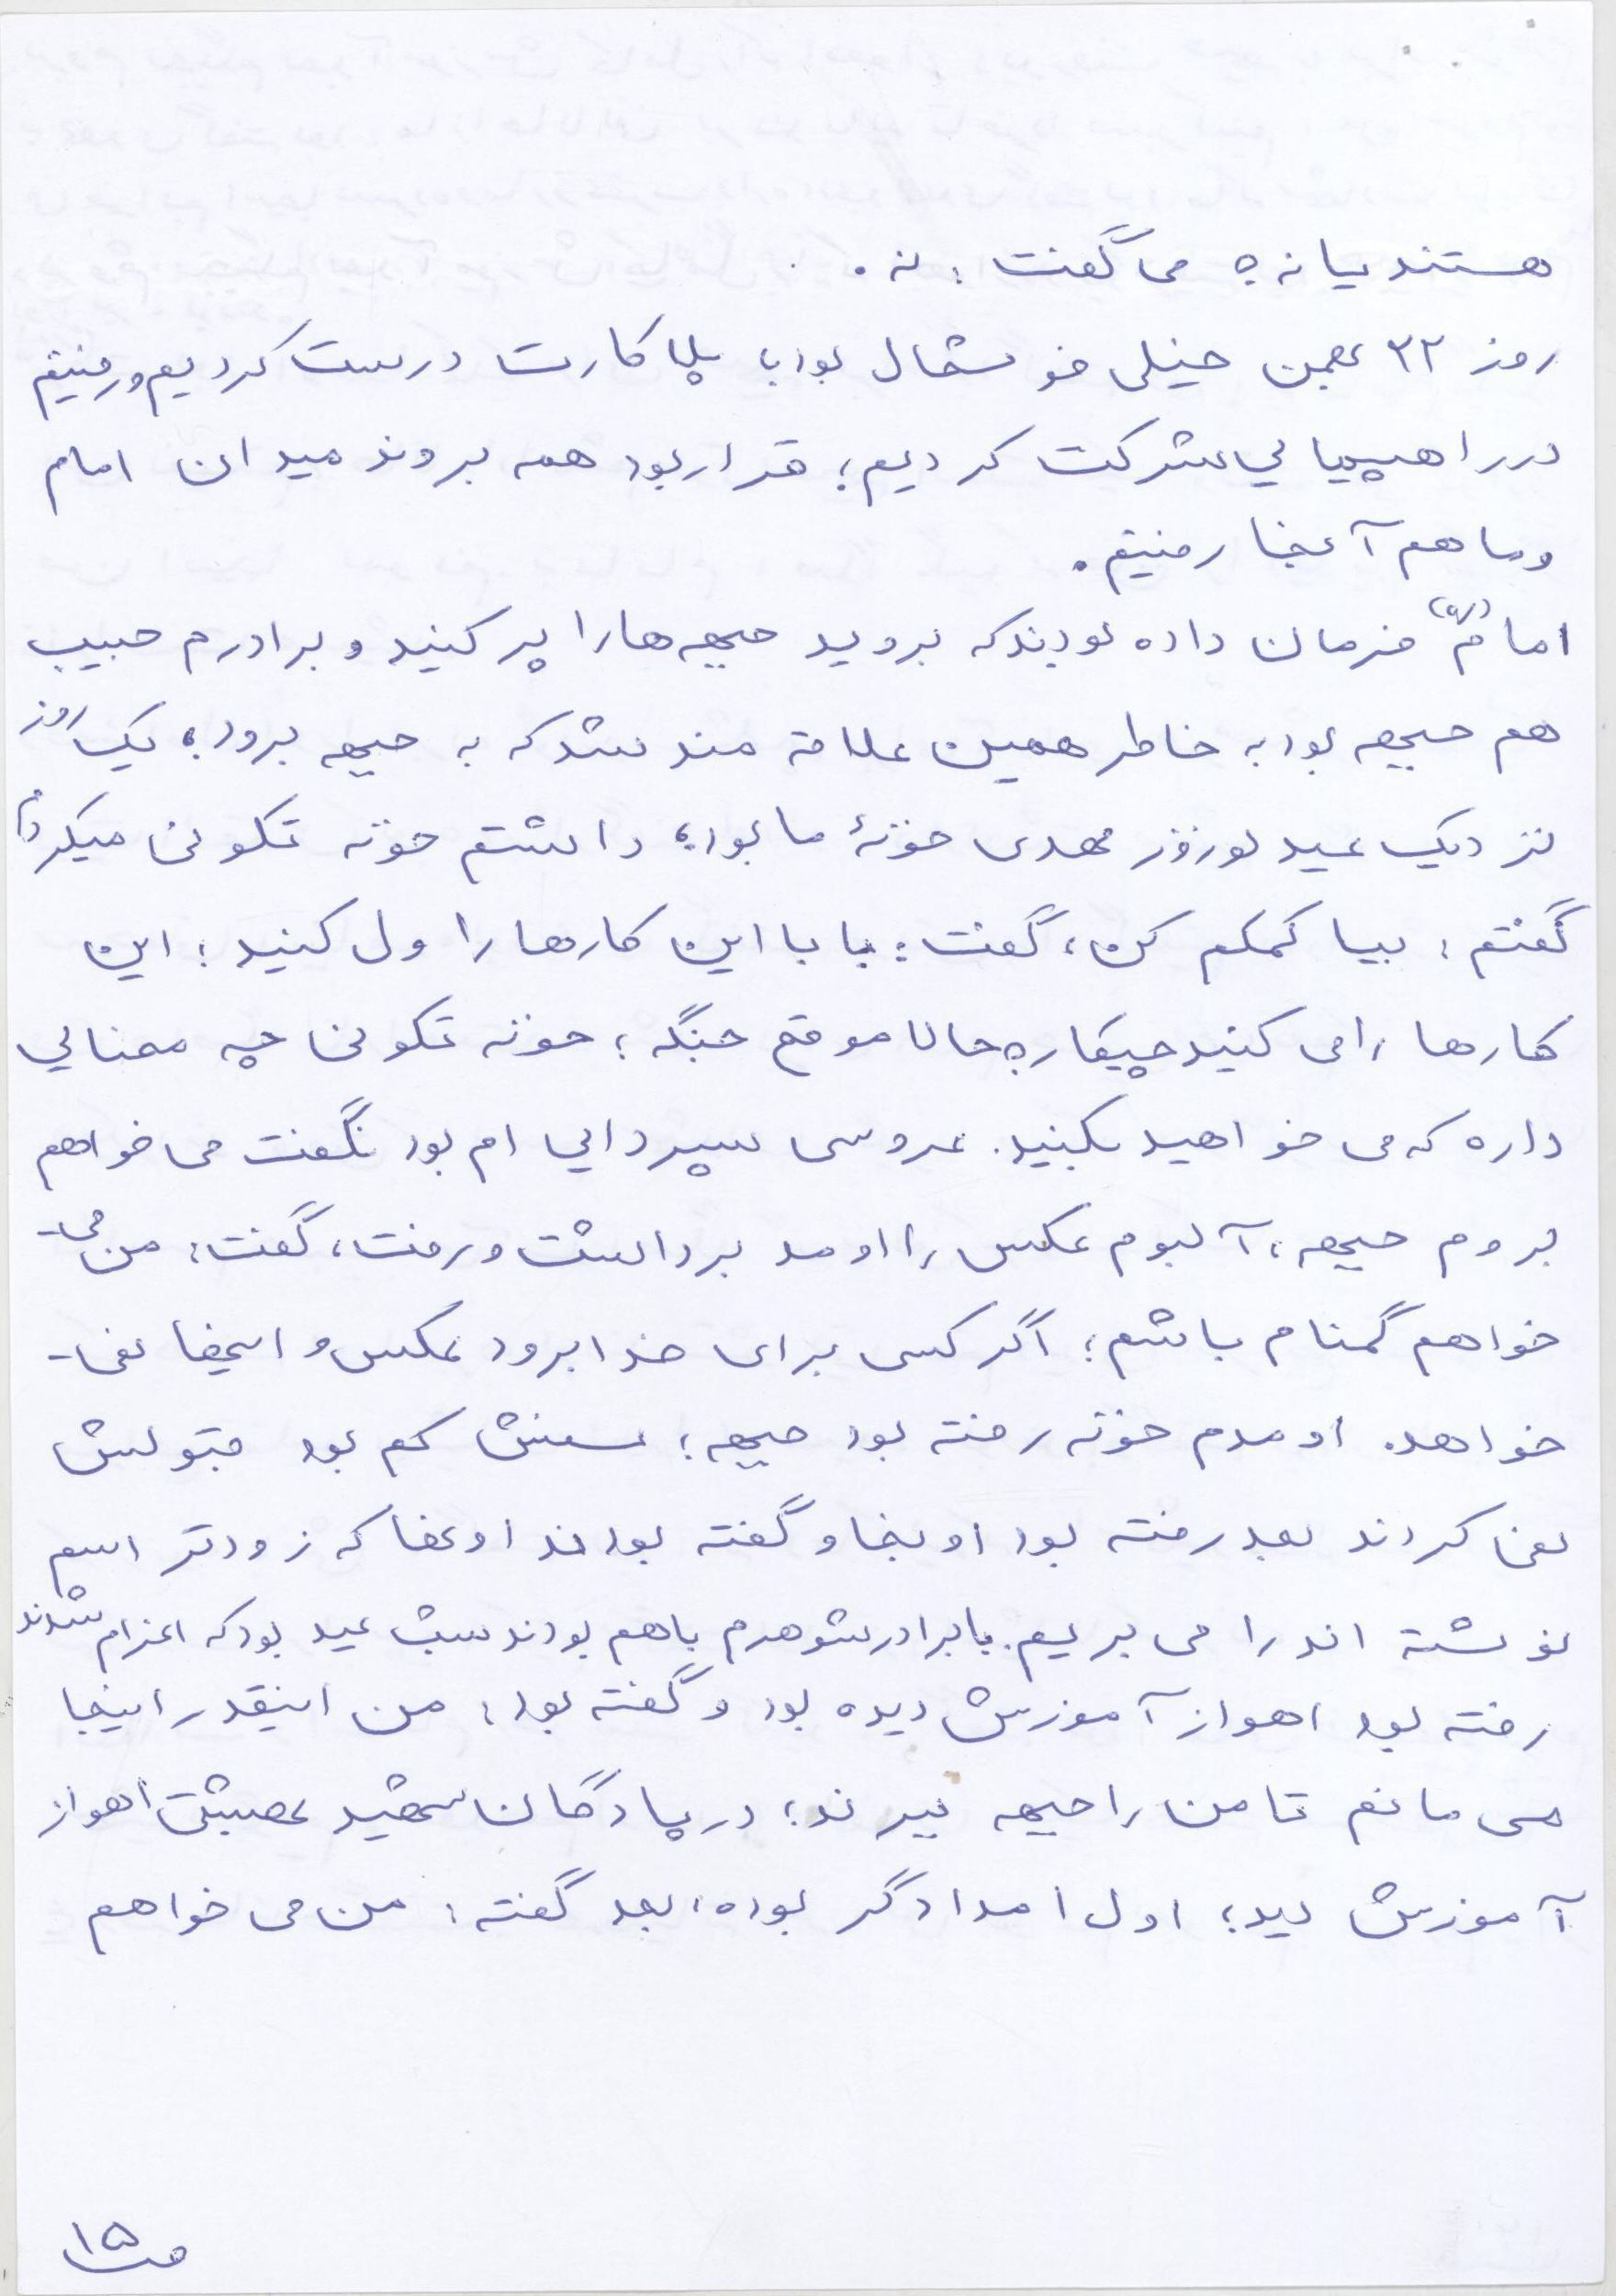 هستند یا نه؟ می گفت: نه.
روز ۲۲ بهمن خیلی خوشحال بود، پلاکارت درست کردیم و رفتیم
در راهپیمایی شرکت کردیم؛ قرار بود همه بروند میدان امام
و ما هم آنجا رفتیم.
امام (ره) فرمان داده بودند که بروید جبهه ها را پر کنید و برادرم حبیب
هم جبهه بود به خاطر همین علاقه مند شد که به جبهه برود؛ یک روز
نزدیک عید نوروز مهدی خونهٔ ما بود، داشتم خونه تکونی میکردم
گفتم: بیا کمکم کن، گفت: بابا این کارها را ول کنید؛ این
کارها را می کنید چیکار؟ حالا موقع جنگه؛ خونه تکونی چه معنایی
داره که می خواهید بکنید. عروسی پسردایی ام بود نگفت می خواهم
بروم جبهه، آلبوم عکس را اومد برداشت و رفت، گفت: من می-
خواهم گمنام باشم؛ اگر کسی برای خدا برود عکس و اینها نمی-
خواهد. اومدم خونه رفته بود جبهه؛ سنش کم بود قبولش
نمی کردند بعد رفته بود اونجا و گفته بودند اونها که زودتر اسم
نوشته اند را می بریم. با برادر شوهرم باهم بودند شب عید بود که اعزام شدند
رفته بود اهواز آموزش دیده بود و گفته بود: من اینقدر اینجا
می مانم تا من را جبهه ببرند؛ در پادگان شهید بهشتی اهواز
آموزش دید؛ اول امدادگر بوده، بعد گفته: من می خواهم
۱۵